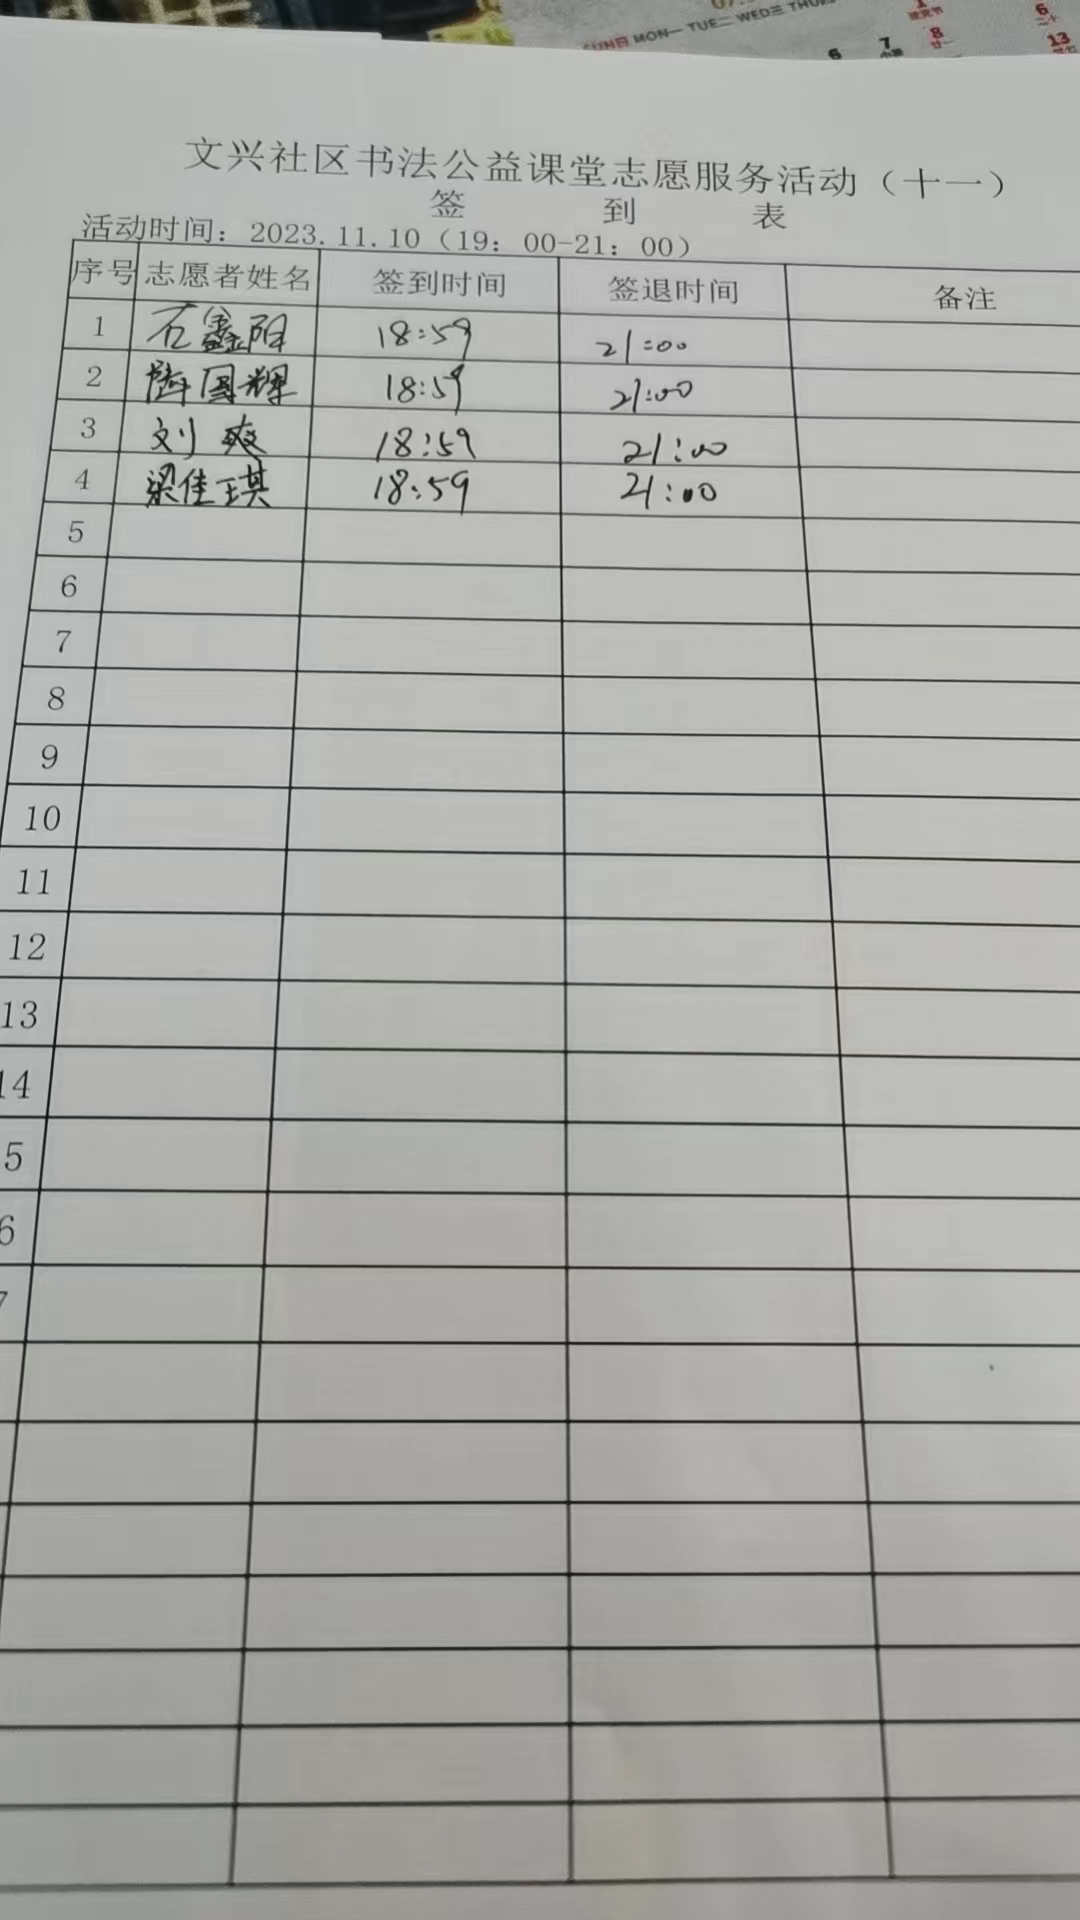 SUN日 MON一 TUE二 WED三 THU四
1 6
6 7 8 13
文兴社区书法公益课堂志愿服务活动（十一）
签 到 表
活动时间：2023.11.10（19：00-21：00）
序号 志愿者姓名 签到时间 签退时间 备注
1 石鑫阳 18:59 21:00
2 陆国辉 18:59 21:00
3 刘爽 18:59 21:00
4 梁佳琪 18:59 21:00
5
6
7
8
9
10
11
12
13
14
5
6
7